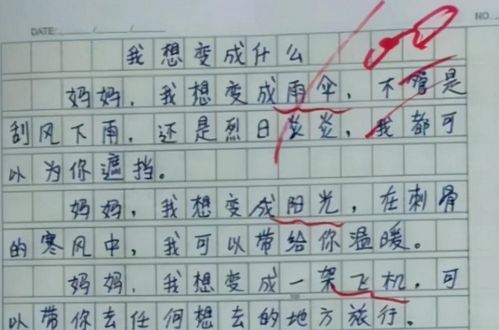 DATE:
NO.
我想变成什么
妈妈，我想变成雨伞，不管是
刮风下雨，还是烈日炎炎，我都可
以为你遮挡。
妈妈，我想变成阳光，在刺骨
的寒风中，我可以带给你温暖。
妈妈，我想变成一架飞机，可
以带你去任何想去的地方旅行。